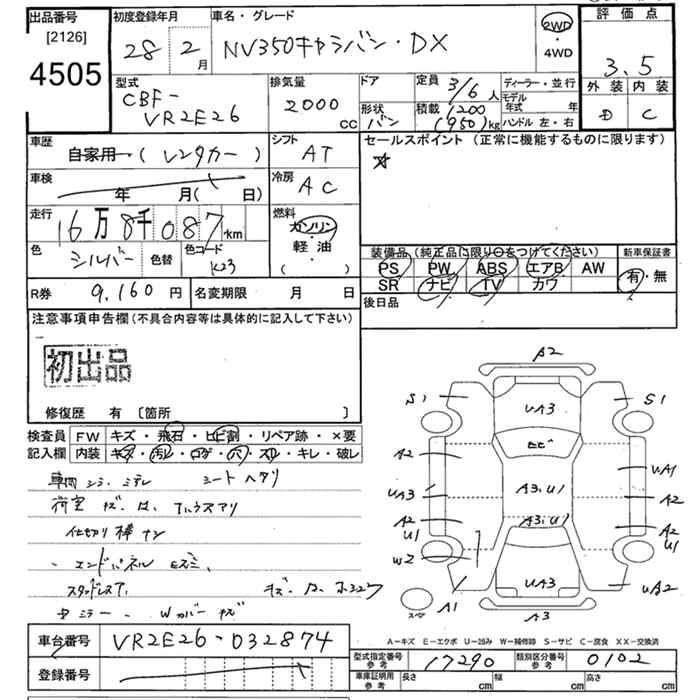 出品番号
[2126]
4505
初度登録年月
28 2月
車名・グレード
NV350キャラバン・DX
2WD
4WD
評価点
3.5
外装 内装
D C
型式
CBF-
VR2E26
排気量
2000
CC
ドア
形状
バン
定員 3/6人
積載 1200
(950)kg
ディーラー・並行
モデル
年式 年
ハンドル 左・右
車歴
自家用 (レンタカー)
シフト
AT
セールスポイント (正常に機能するものに限ります)
☆
車検
年 月( 日)
冷房
AC
走行
16万8千087km
燃料
ガソリン
軽・油
( )
色
シルバー
色替
色コード
K23
装備品(純正品に限り○をつけてください)
PS PW ABS エアB AW
SR ナビ TV カワ
新車保証書
有・無
R券 9,160円
名変期限 月 日
後日品
注意事項申告欄(不具合内容等は具体的に記入して下さい)
初出品
修復歴 有 〔箇所 〕
検査員
記入欄
FW キズ・飛石・ヒビ割・リペア跡・×要
内装 キズ・汚レ・コゲ・穴・スレ・キレ・破レ
シートヘタリ
仕切り棒ナシ
エンドパネル
スタッドレス
A2
S1
UA3
S1
ヒビ
A2
UA1
A3.U1
UA3
A2
A3.U1
A2
U1
A2
U1
W2
UA3
UA2
A1
A3
スペア
A-キズ E-エクボ U-凹み W-補修跡 S-サビ C-腐食 XX-交換済
車台番号 VR2E26-032874
登録番号
型式指定番号
参考
17290
類別区分番号
参考
0102
車庫証明用
参考
長さ cm
幅 cm
高さ cm